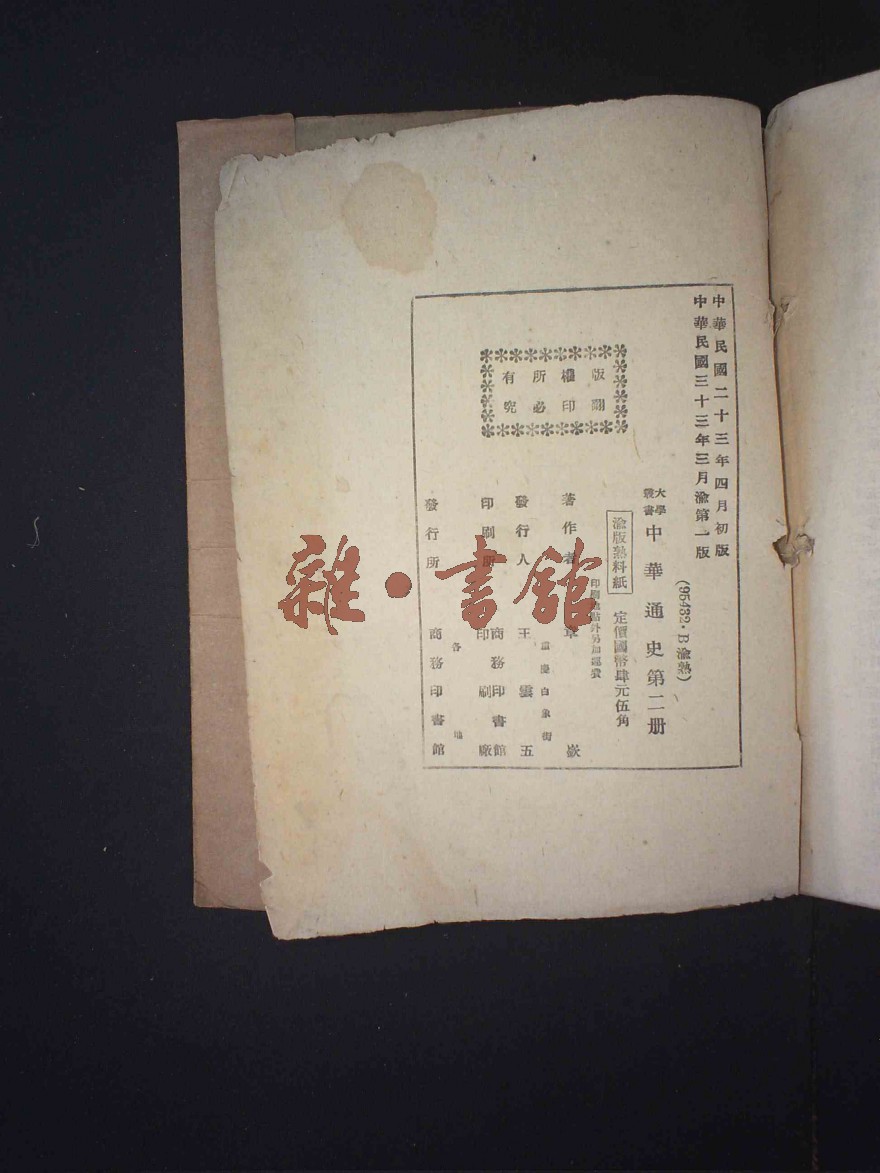 中華民國二十三年四月初版
中華民國三十三年三月渝第一版
(95432·B渝熟)
大學叢書
中華通史第二册
渝版熟料紙
定價國幣肆元伍角
印刷地點外另加運費
版權所有
翻印必究
著作者 章嶔
重慶白象街
發行人 王雲五
印刷所 商務印書館印刷廠
發行所 各地商務印書館
雜·書館